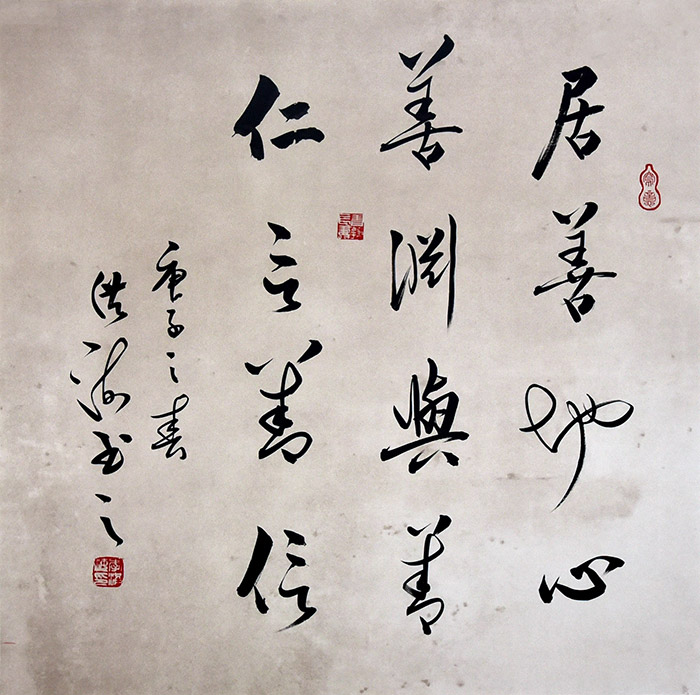 居善地心
善渊與善
仁言善信
庚子之春
洪海书之